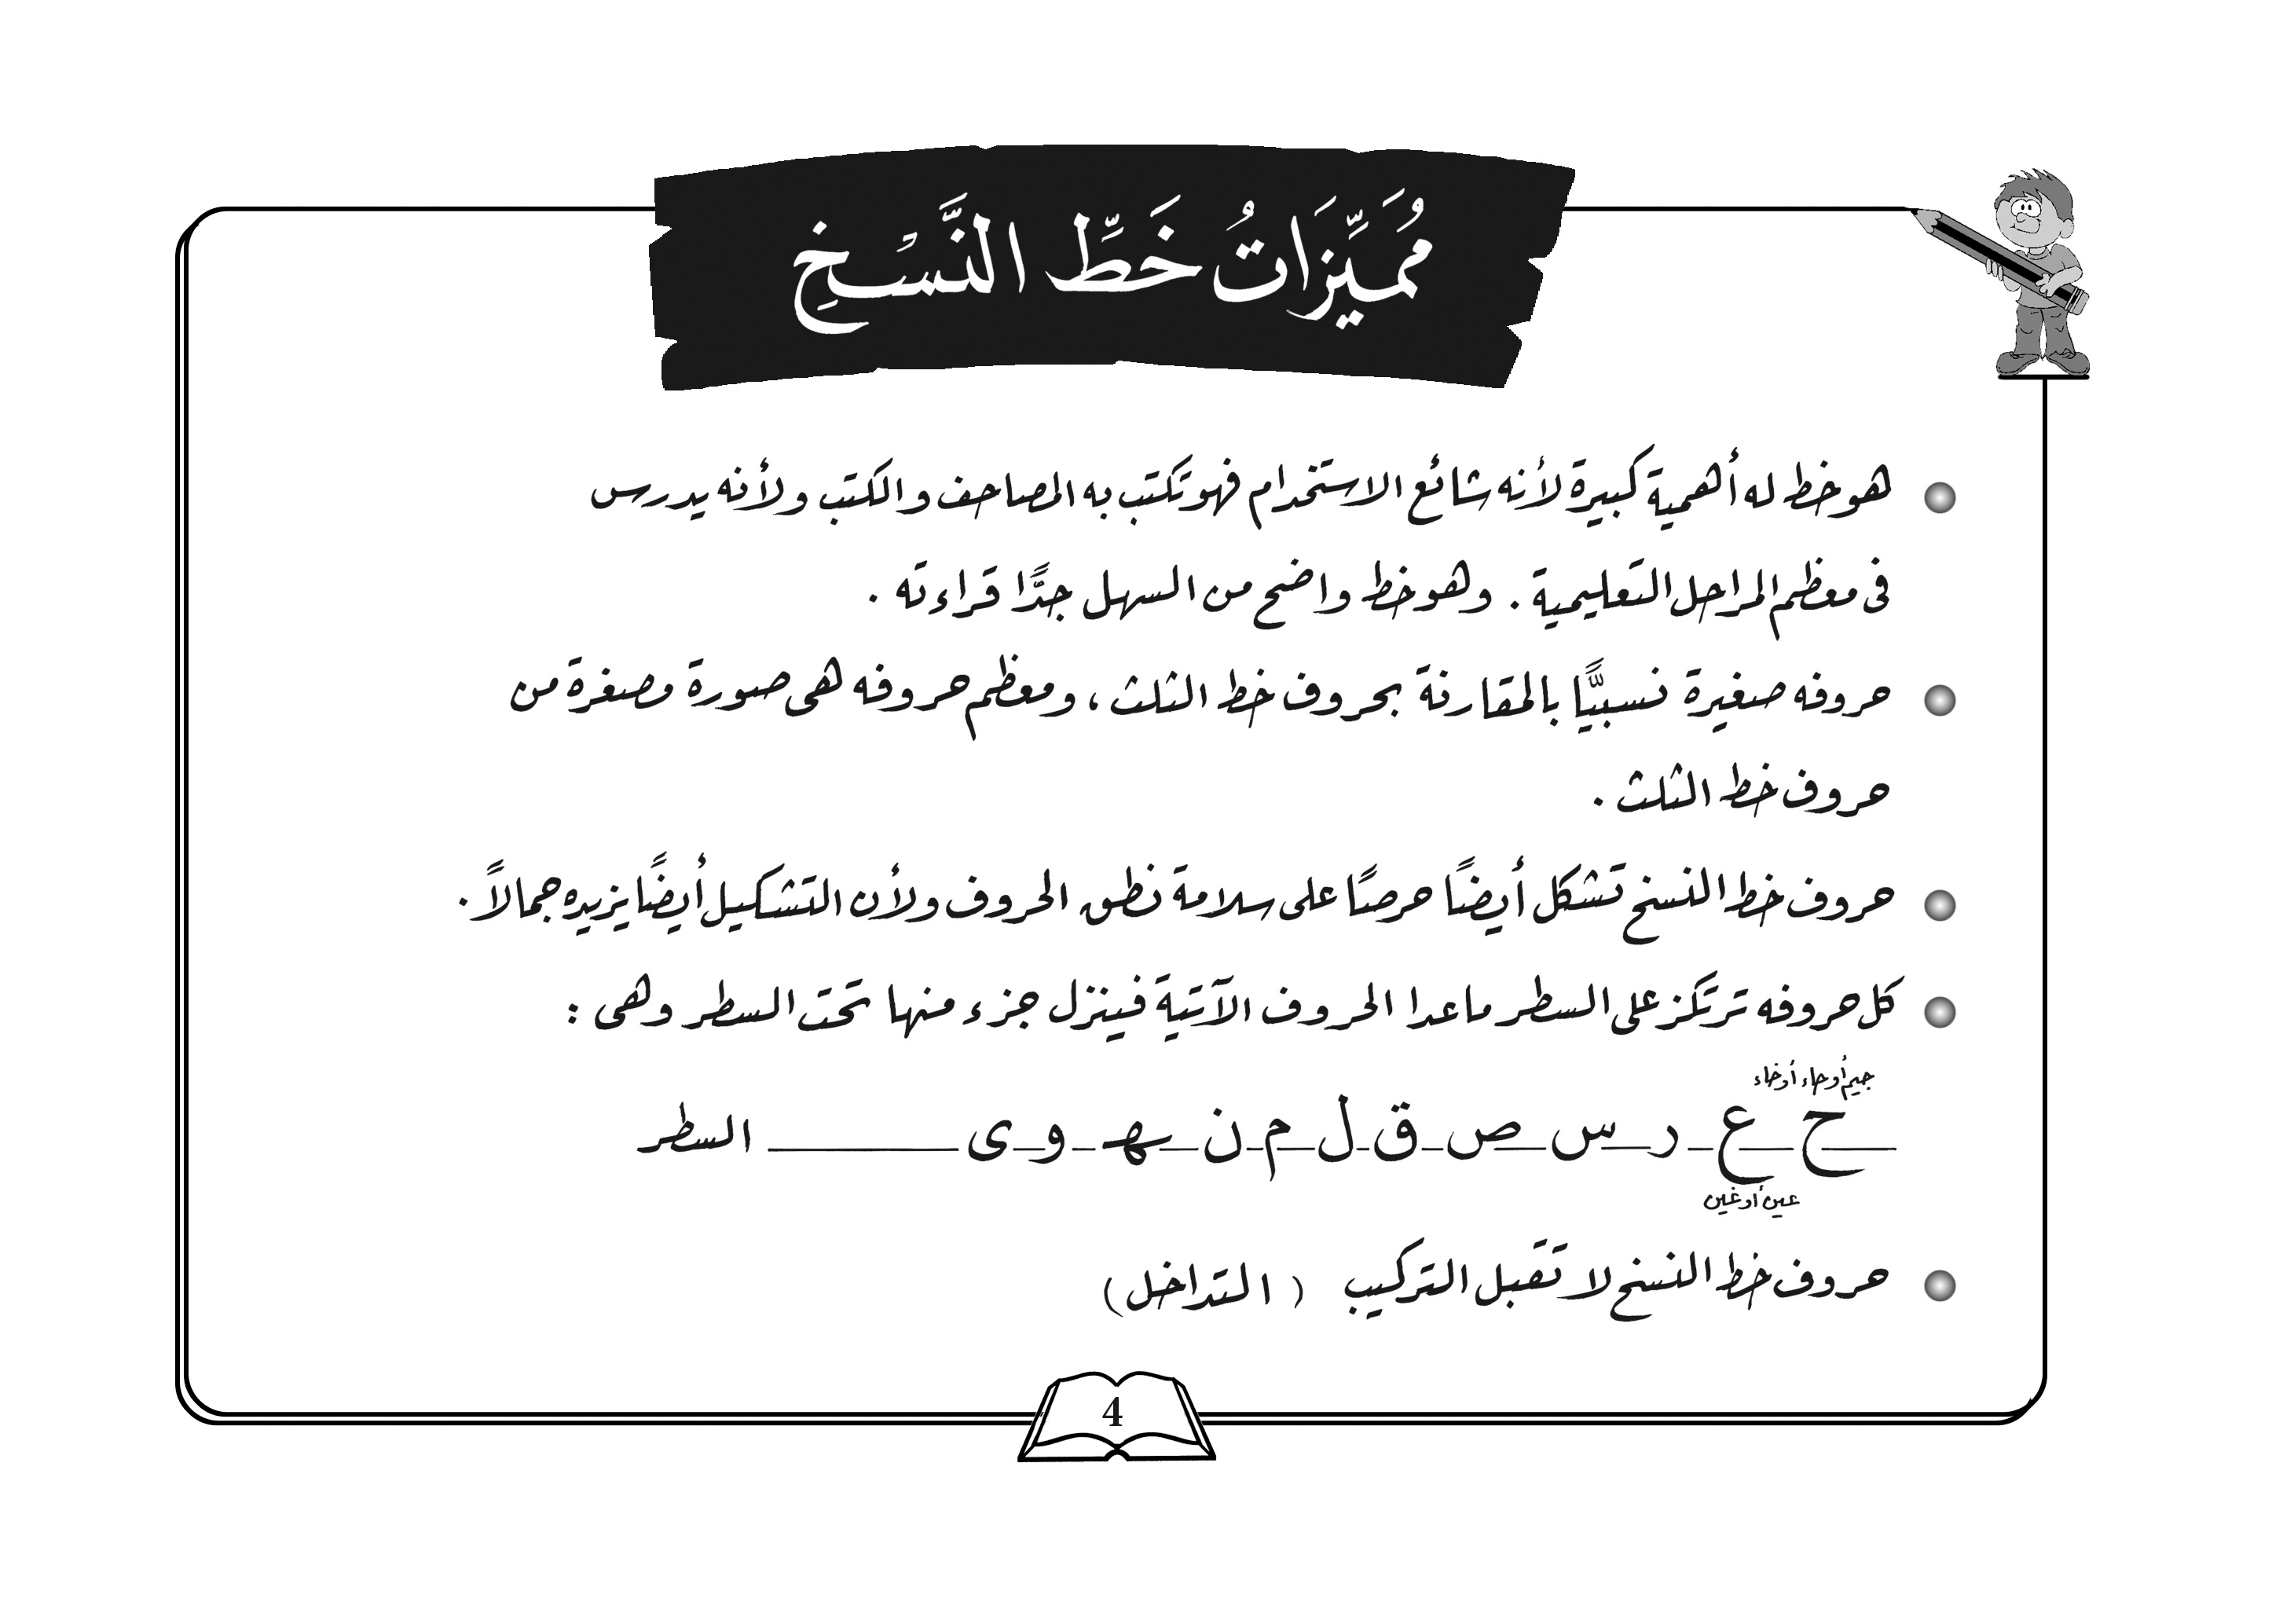 مُمَيِّزَاتُ خَطِّ النَّسْخِ
هو خط له أهمية كبيرة لأنه شائع الاستخدام فهو تكتب به المصاحف والكتب ولأنه يدرس
فى معظم المراحل التعليمية . وهو خط واضح من السهل جدًّا قراءته .
حروفه صغيرة نسبيًّا بالمقارنة بحروف خط الثلث ، ومعظم حروفه هى صورة مصغرة من
حروف خط الثلث .
حروف خط النسخ تشكل أيضًا حرصًا على سلامة نطق الحروف ولأن التشكيل أيضًا يزيده جمالاً .
كل حروفه ترتكز على السطر ماعدا الحروف الآتية فينزل جزء منها تحت السطر وهى :
جيم أوحاء أوخاء
ح ع ر س ص ق ل م ن هـ و ى السطر
عين أوغين
حروف خط النسخ لا تقبل التركيب ( التداخل )
4